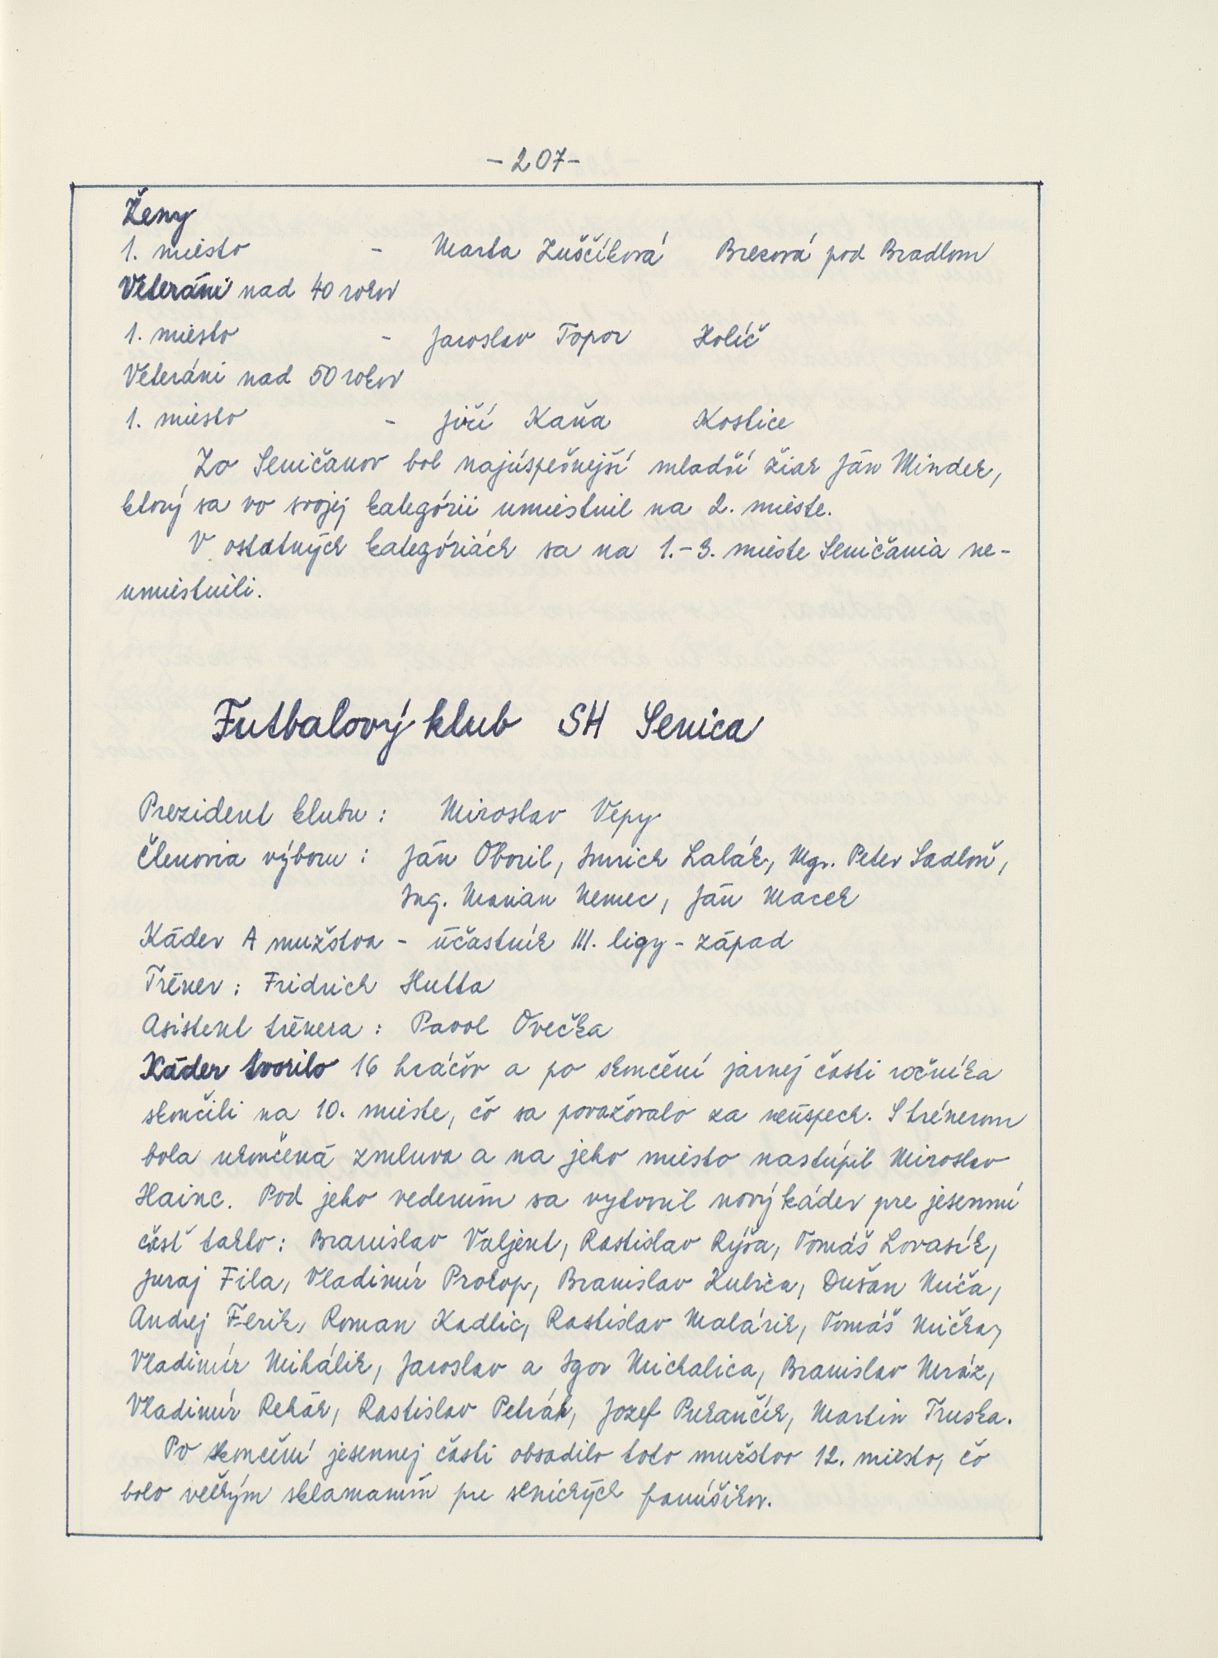 -207-
Ženy
1. miesto - Marta Zuščíková Brezová pod Bradlom
Veteráni nad 40 rokov
1. miesto - Jaroslav Topor Holíč
Veteráni nad 50 rokov
1. miesto - Jiří Kaňa Kostice
Zo Seničanov bol najúspešnejší mladší žiak Ján Mindek,
ktorý sa vo svojej kategórii umiestnil na 2. mieste.
V ostatných kategóriách sa na 1.-3. mieste Seničania ne-
umiestnili.
Futbalový klub SH Senica
Prezident klubu : Miroslav Vepy
Členovia výboru : Ján Oboril, Imrich Lalák, Mgr. Peter Sadloň,
Ing. Marian Nemec, Ján Macek
Káder A mužstva - účastník III. ligy - západ
Tréner : Fridrich Hutta
Asistent trénera : Pavol Ovečka
Káder tvorilo 16 hráčov a po skončení jarnej časti ročníka
skončili na 10. mieste, čo sa považovalo za neúspech. S trénerom
bola ukončená zmluva a na jeho miesto nastúpil Miroslav
Hainc. Pod jeho vedením sa vytvoril nový káder pre jesennú
časť takto : Branislav Valjent, Rastislav Rýša, Tomáš Lovasík,
Juraj Fila, Vladimír Prokop, Branislav Kubica, Dušan Miča,
Andrej Ferik, Roman Kadlic, Rastislav Malárik, Tomáš Mička,
Vladimír Mihálik, Jaroslav a Igor Michalica, Branislav Mráz,
Vladimír Rehák, Rastislav Petrák, Jozef Pukančík, Martin Truska.
Po skončení jesennej časti obsadilo toto mužstvo 12. miesto, čo
bolo veľkým sklamaním pre senických fanúšikov.